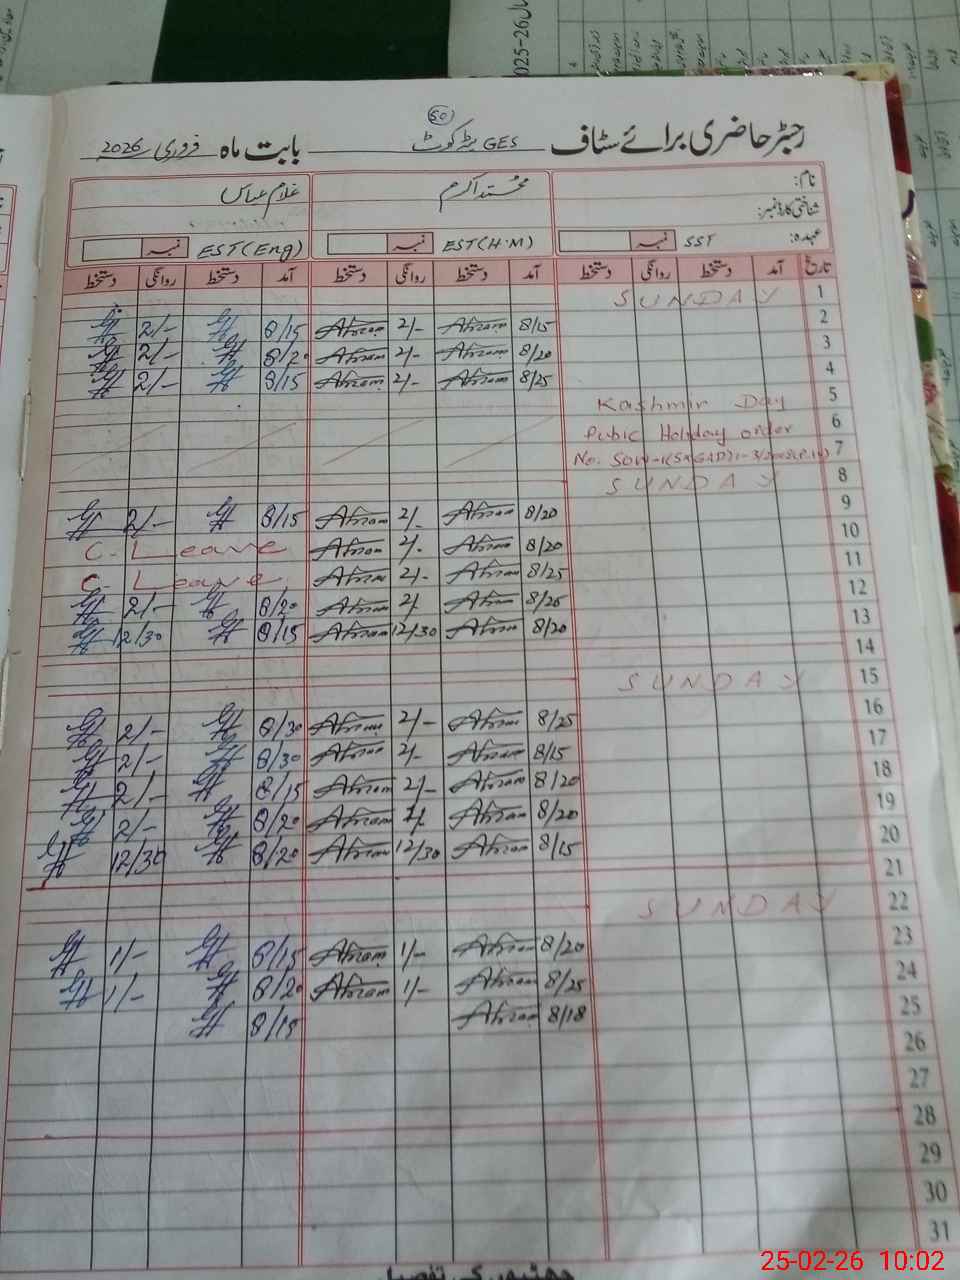 50
رجسٹر حاضری برائے سٹاف GES بٹر کوٹ بابت ماہ فروری 2026
نام: محمد اکرم غلام عباس
شناختی کارڈ نمبر:
عہدہ: SST نمبر EST(H.M) نمبر EST(Eng) نمبر
تاریخ آمد دستخط روانگی دستخط آمد دستخط روانگی دستخط آمد دستخط روانگی دستخط
1 SUNDAY
2 8/15 Akram 2/- Akram 8/15 2/-
3 8/20 Akram 2/- Akram 8/20 2/-
4 8/25 Akram 2/- Akram 8/15 2/-
5 Kashmir Day
6 Pubic Holiday order
7 No.
8 SUNDAY
9 8/20 Akram 2/- Akram 8/15 2/-
10 8/20 Akram 2/- Akram C. Leave
11 8/25 Akram 2/- Akram C. Leave
12 8/25 Akram 2/- Akram 8/20 2/-
13 8/20 Akram 12/30 Akram 8/15 12/30
14
15 SUNDAY
16 8/25 Akram 2/- Akram 8/30 2/-
17 8/15 Akram 2/- Akram 8/30 2/-
18 8/20 Akram 2/- Akram 8/15 2/-
19 8/20 Akram 2/- Akram 8/20 2/-
20 8/15 Akram 12/30 Akram 8/20 12/30
21
22 SUNDAY
23 8/20 Akram 1/- Akram 8/15 1/-
24 8/25 Akram 1/- Akram 8/20 1/-
25 8/18 Akram 8/15
26
27
28
29
30
31
چھٹیوں کی تفصیل
25-02-26 10:02